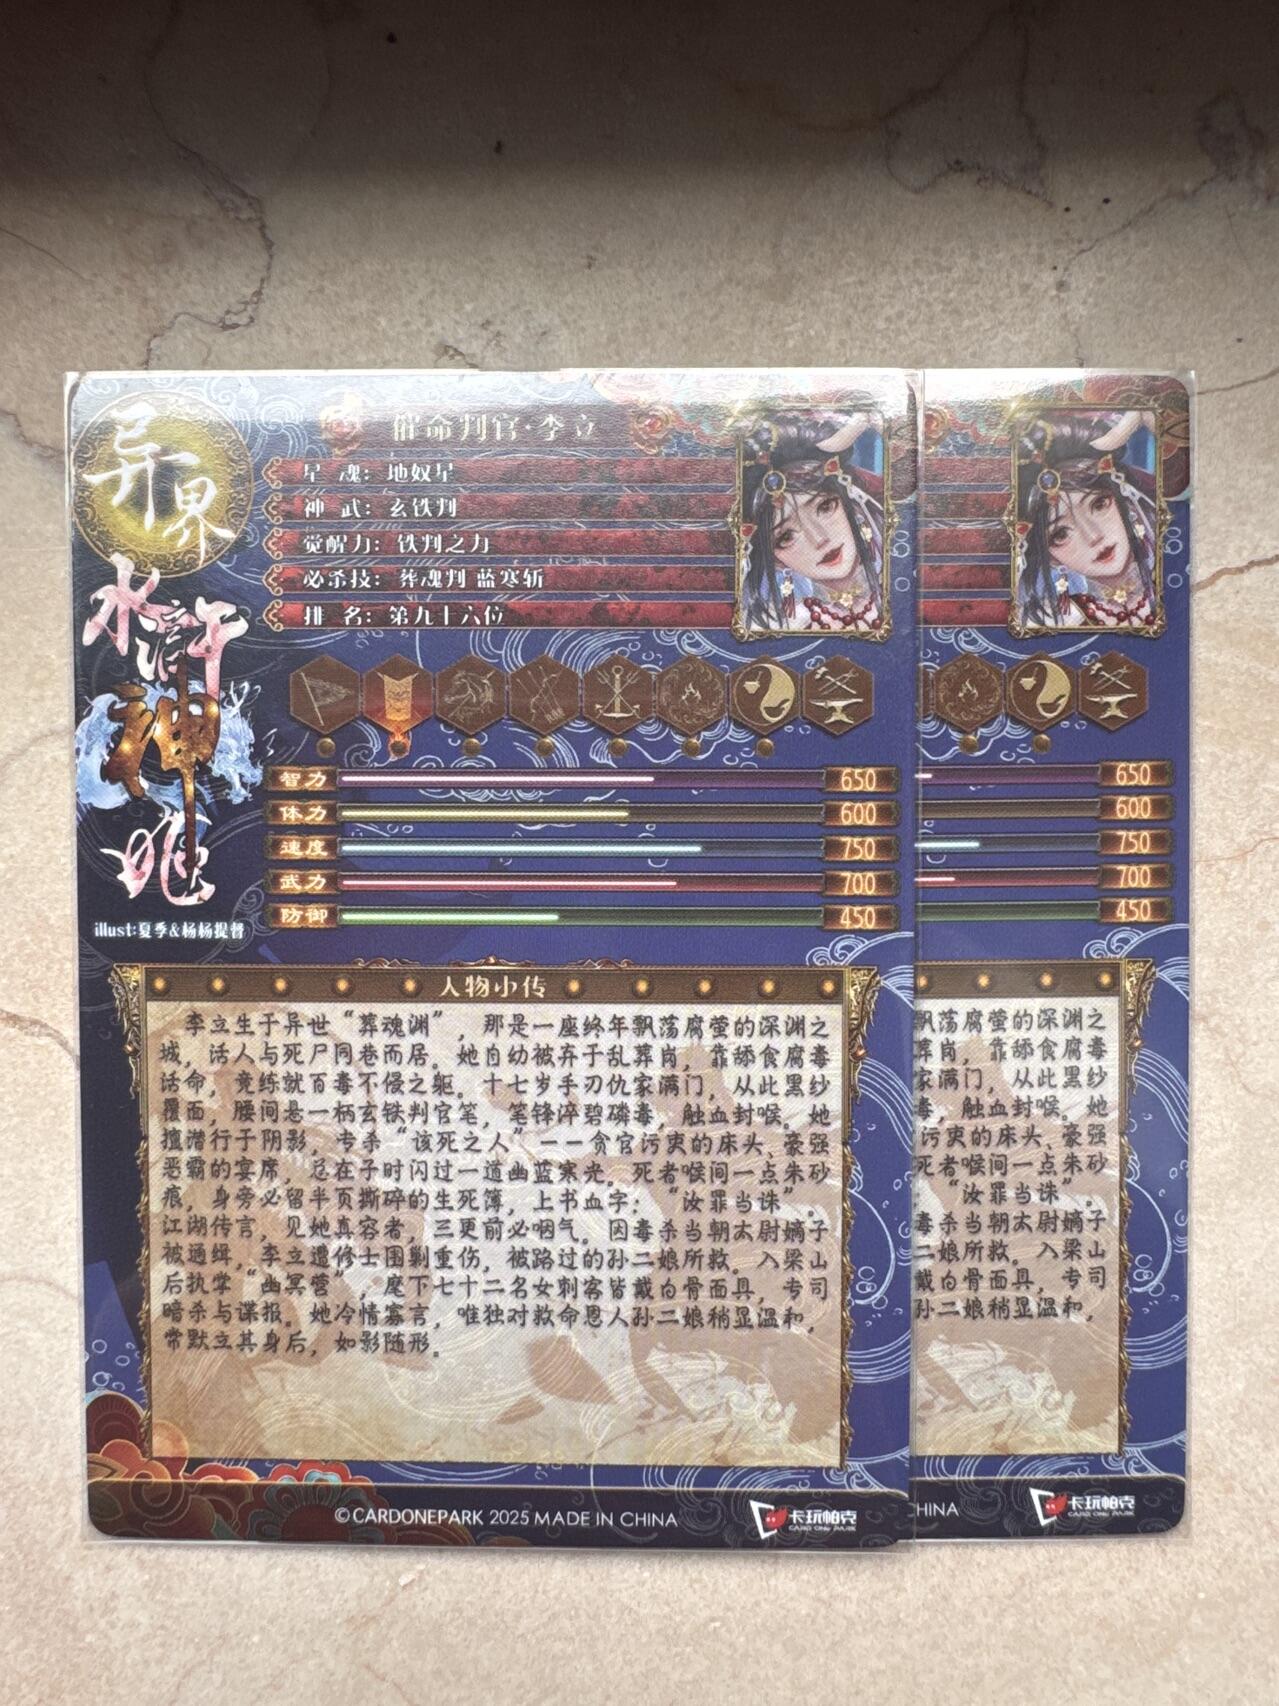 异界
水浒
神
姬
illust:夏季&杨杨提督
催命判官·李立
星 魂：地奴星
神 武：玄铁判
觉醒力：铁判之力
必杀技：葬魂判 蓝寒斩
排 名：第九十六位
智力 650
体力 600
速度 750
武力 700
防御 450
人物小传
李立生于异世“葬魂渊”，那是一座终年飘荡腐萤的深渊之
城，活人与死尸同巷而居。她自幼被弃于乱葬岗，靠舔食腐毒
活命，竟练就百毒不侵之躯。十七岁手刃仇家满门，从此黑纱
覆面，腰间悬一柄玄铁判官笔，笔锋淬碧磷毒，触血封喉。她
擅潜行于阴影，专杀“该死之人”——贪官污吏的床头、豪强
恶霸的宴席，总在子时闪过一道幽蓝寒光。死者喉间一点朱砂
痕，身旁必留半页撕碎的生死簿，上书血字：“汝罪当诛”。
江湖传言，见她真容者，三更前必咽气。因毒杀当朝太尉嫡子
被通缉，李立遭修士围剿重伤，被路过的孙二娘所救。入梁山
后执掌“幽冥营”，麾下七十二名女刺客皆戴白骨面具，专司
暗杀与谍报。她冷情寡言，唯独对救命恩人孙二娘稍显温和，
常默立其身后，如影随形。
©CARDONEPARK 2025 MADE IN CHINA
卡玩帕克
CARD ONE PARK
650
600
750
700
450
飘荡腐萤的深渊之
葬岗，靠舔食腐毒
家满门，从此黑纱
毒，触血封喉。她
污吏的床头、豪强
死者喉间一点朱砂
“汝罪当诛”。
毒杀当朝太尉嫡子
二娘所救。入梁山
戴白骨面具，专司
孙二娘稍显温和，
HINA
卡玩帕克
CARD ONE PARK